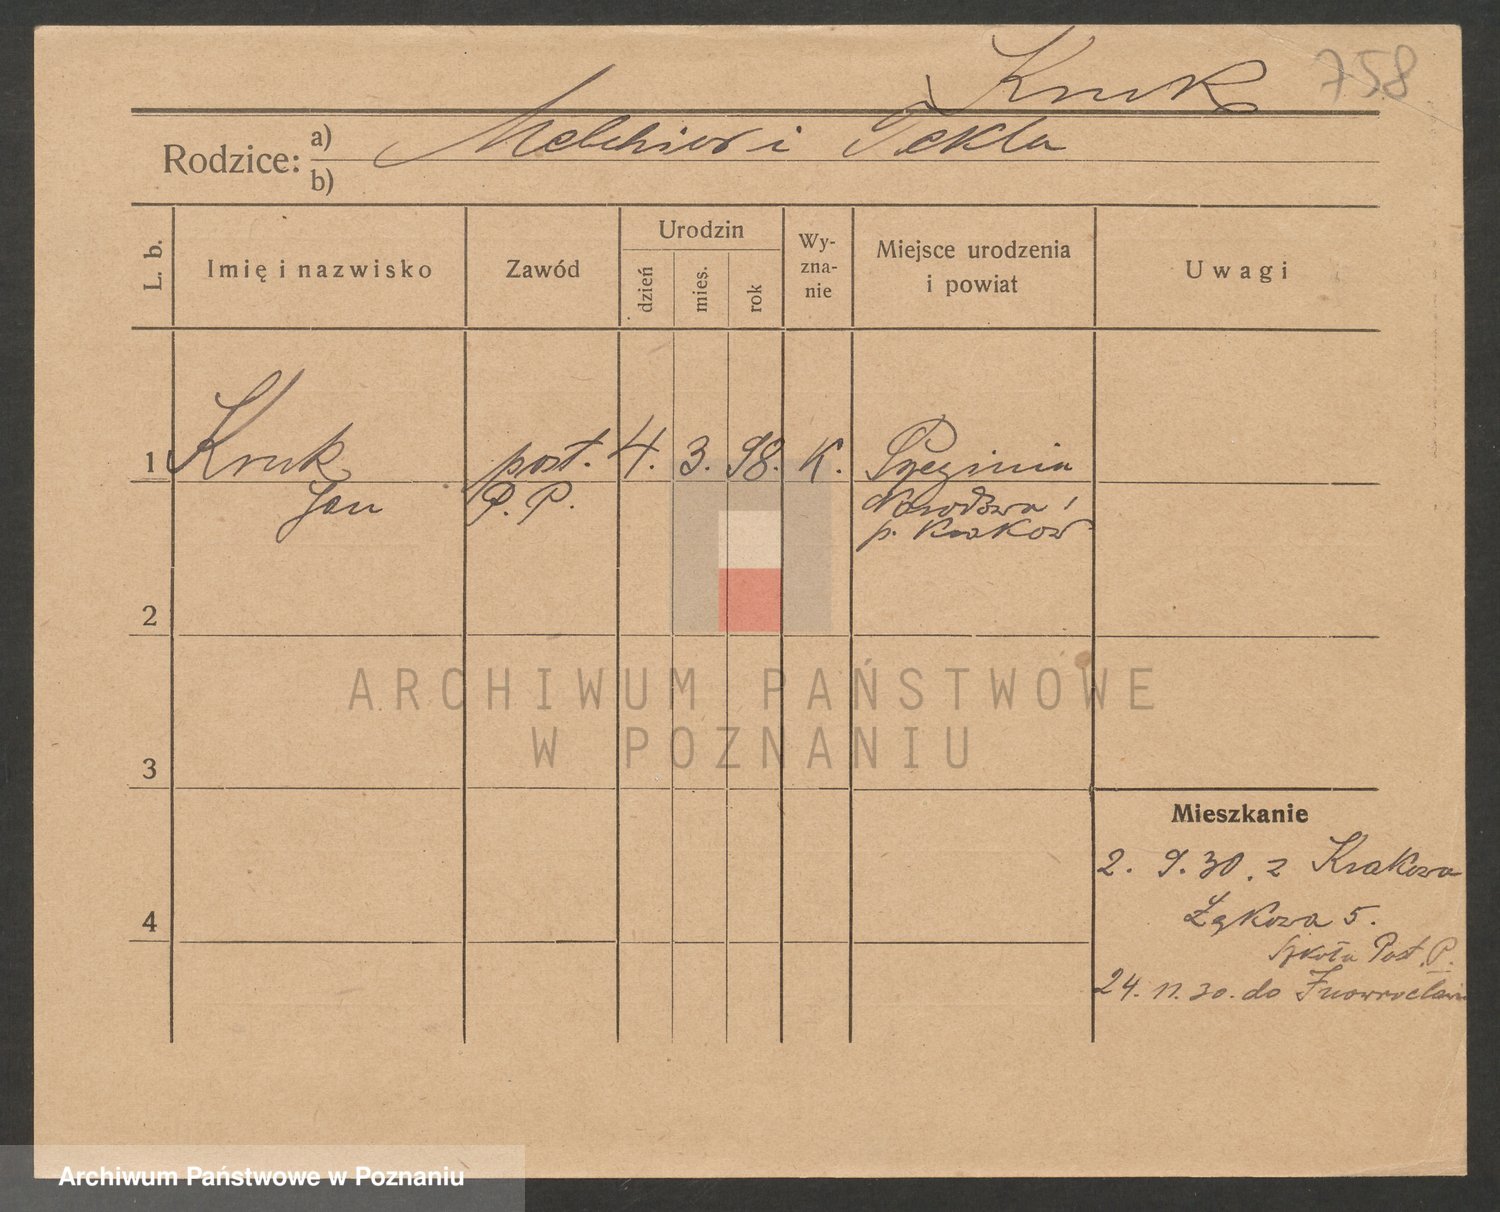 Kruk 758
Rodzice: a) Melchior i Tekla
b)
L. b. Imię i nazwisko Zawód Urodzin dzień mies. rok Wy-zna-nie Miejsce urodzenia i powiat Uwagi
1 Kruk post. 4. 3. 98. K.
Jan P. P.
p. Kraków
2
ARCHIWUM PAŃSTWOWE
W POZNANIU
3
Mieszkanie
2. 9. 30. z Krakowa
4
Łąkowa 5.
Szkoła Post. P.
24. 11. 30. do Inowrocławia
Archiwum Państwowe w Poznaniu